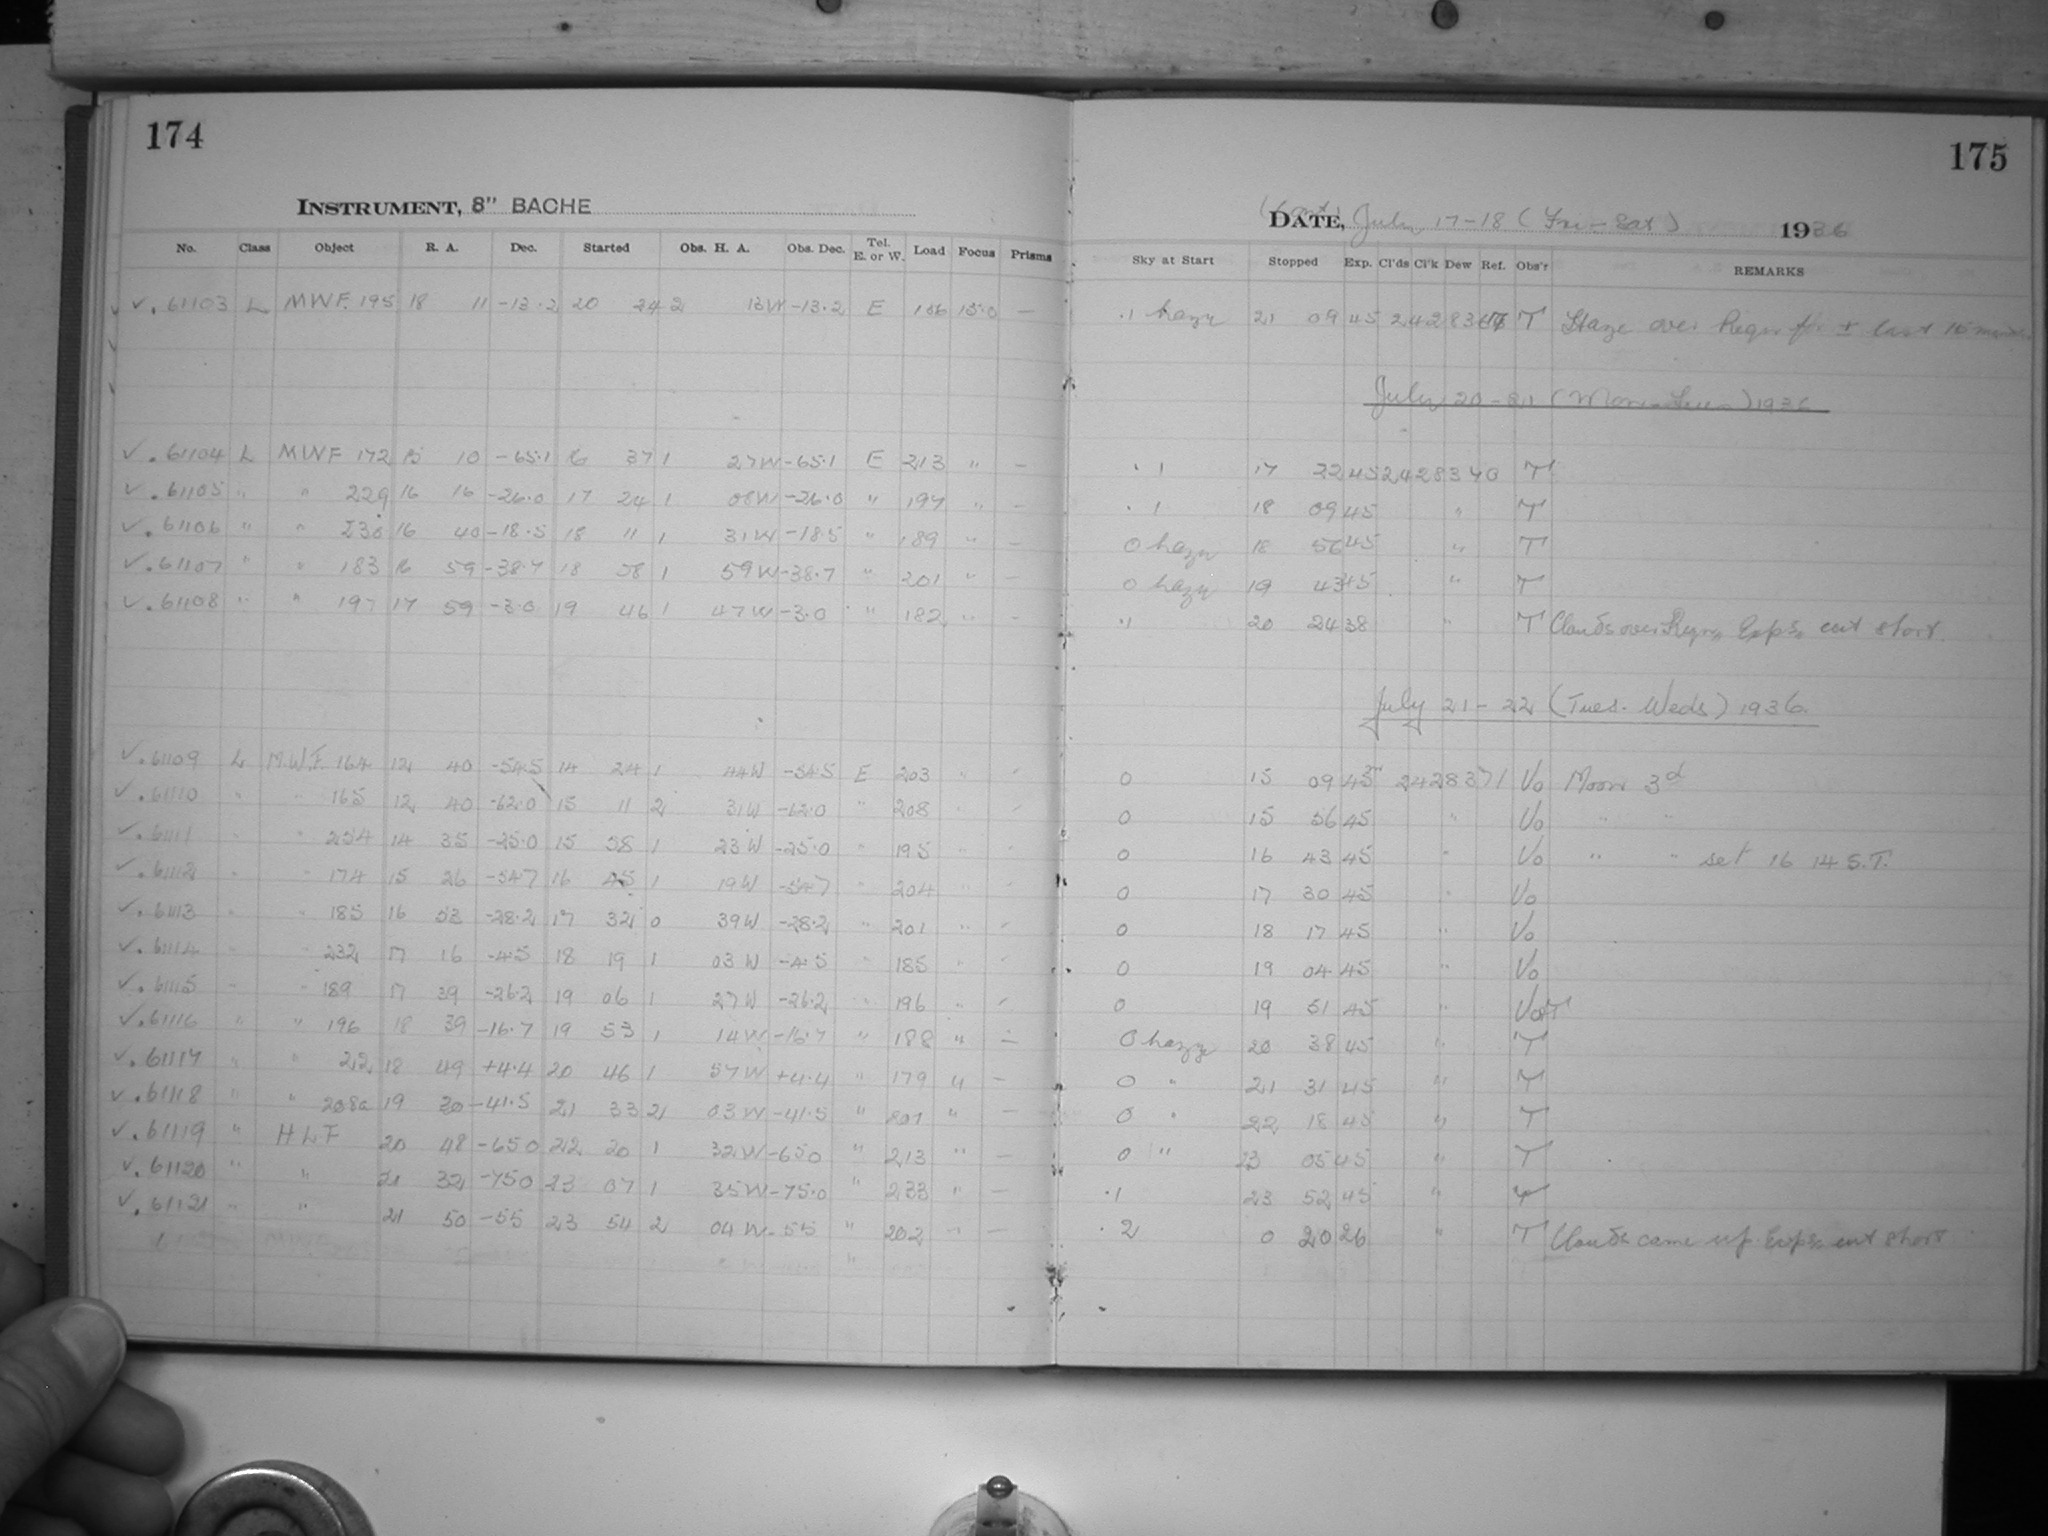 174
175
INSTRUMENT, 8" BACHE
DATE, July 17-18 (Fri-Sat) 1936
No. Class Object R. A. Dec. Started Obs. H. A. Obs. Dec. Tel. E. or W. Load Focus Prisms Sky at Start Stopped Exp. Cl'ds Cl'k Dew Ref. Obs'r REMARKS
✓. 61103 L MWF. 195 18 11 -13.2 20 24 2 13W -13.2 E 186 15.0 — .1 hazy 21 09 45 24283 T Haze over Region for ± last 10 minutes
July 20-21 (Mon-Tues) 1936
✓. 61104 L MWF 172 15 10 -65.1 16 37 1 27W -65.1 E 213 " — .1 17 22 45 2428370 T
✓. 61105 " " 229 16 16 -26.0 17 24 1 08W -26.0 " 197 " — .1 18 09 45 " T
✓. 61106 " " 230 16 40 -18.5 18 11 1 31W -18.5 " 189 " — 0 hazy 18 56 45 " T
✓. 61107 " " 183 16 59 -38.7 18 58 1 59W -38.7 " 201 " — 0 hazy 19 43 45 " T
✓. 61108 " " 197 17 59 -3.0 19 46 1 47W -3.0 " 182 " — .1 20 24 38 " T Clouds over Region Exps. cut short.
July 21-22 (Tues. Weds) 1936.
✓. 61109 L M.W.F. 164 12 40 -54.5 14 24 1 44W -54.5 E 203 " " 0 15 09 45m 2428371 Vo Moon 3d
✓. 61110 " " 165 12 40 -62.0 15 11 2 31W -62.0 " 208 " " 0 15 56 45 " Vo " "
✓. 61111 " " 254 14 35 -25.0 15 58 1 23W -25.0 " 195 " " 0 16 43 45 " Vo " " set 16 14 S.T.
✓. 61112 " " 174 15 26 -54.7 16 45 1 19W -54.7 " 204 " " 0 17 30 45 " Vo
✓. 61113 " " 185 16 53 -28.2 17 32 0 39W -28.2 " 201 " " 0 18 17 45 " Vo
✓. 61114 " " 232 17 16 -4.5 18 19 1 03W -4.5 " 185 " " 0 19 04 45 " Vo
✓. 61115 " " 189 17 39 -26.2 19 06 1 27W -26.2 " 196 " " 0 19 51 45 " Vo&T
✓. 61116 " " 196 18 39 -16.7 19 53 1 14W -16.7 " 188 " — 0 hazy 20 38 45 " T
✓. 61117 " " 22 18 49 +4.4 20 46 1 57W +4.4 " 179 " — 0 " 21 31 45 " T
✓. 61118 " " 208a 19 30 -41.5 21 33 2 03W -41.5 " 201 " — 0 " 22 18 45 " T
✓. 61119 " HLF 20 48 -65.0 22 20 1 32W -65.0 " 213 " — 0 " 23 05 45 " T
✓. 61120 " " 21 32 -75.0 23 07 1 35W -75.0 " 233 " — .1 23 52 45 " T
✓. 61121 " " 21 50 -55 23 54 2 04W -55 " 202 " — .2 0 20 26 " T Clouds came up. Exps. cut short